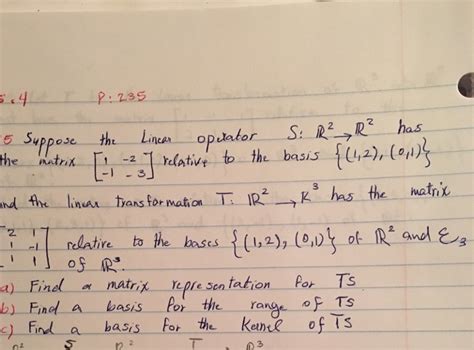 5.4 P: 235
5 Suppose the Linear operator S: ℝ² → ℝ² has
the matrix [1 -2; -1 -3] relative to the basis {(1,2), (0,1)}
and the linear transformation T: ℝ² → ℝ³ has the matrix
[2 1; 1 -1; 1 1] relative to the bases {(1,2), (0,1)} of ℝ² and Ɛ₃
of ℝ³.
a) Find a matrix representation for TS
b) Find a basis for the range of TS
c) Find a basis for the Kernel of TS